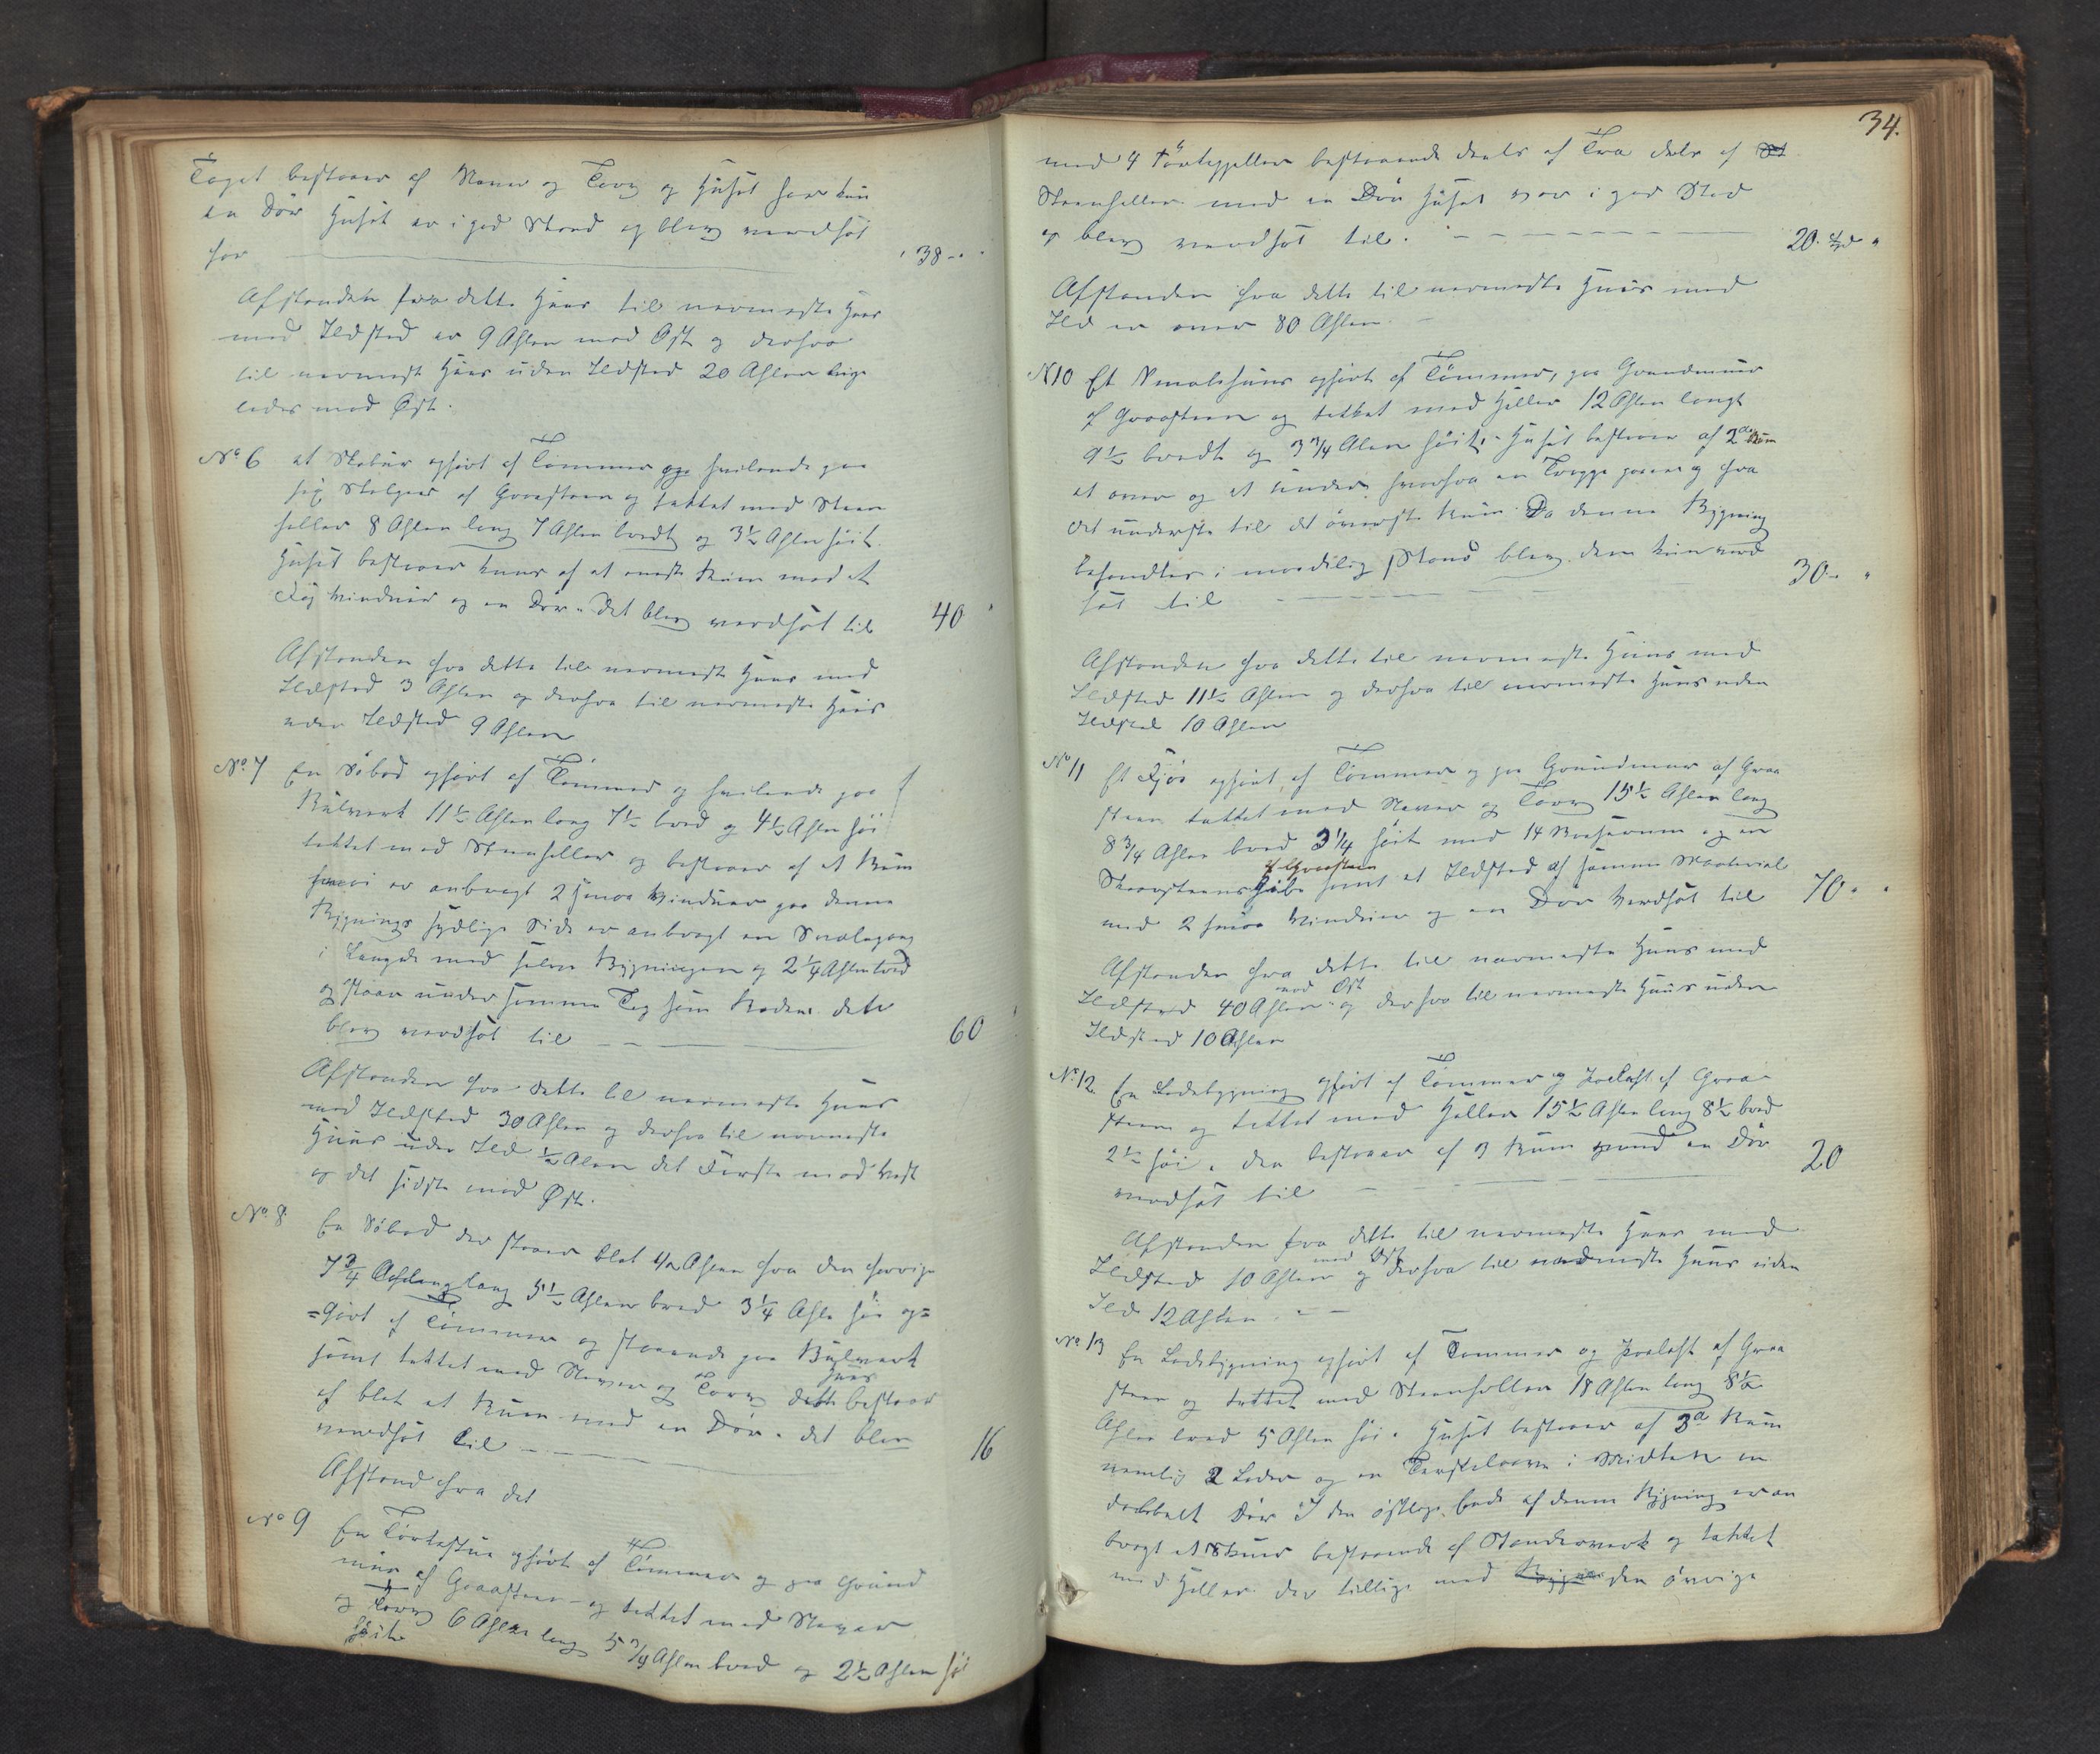 Taget bestaaer af Næver og Torv og Huset har kun
en Dör Huset er i god Stand og blev værdsat
for 38 -
Afstanden fra dette Huus til nærmeste Huus
med Ildsted er 9 Ahlen mod Øst og derfra
til nærmest Huus uden Ildsted 20 Ahlen lige
ledes mod Øst.
No 6 et Stabur opfört af Tömmer hvilende paa
sex Stolper af Graasteen og tækket med Steen
heller 8 Ahlen lang 7 Ahlen bredt og 3 1/2 Ahlen höit.
Huset bestaaer kuns af et eneste Rum med et
Fag Vinduer og en Dör. Det blev værdsat til 40
Afstanden fra dette til nærmest Huus med
Ildsted 3 Ahlen og derfra til nærmeste Huus
uden Ildsted 9 Ahlen
No 7 En Söbod opfört af Tömmer og hvilende paa
Bulverk 11 1/2 Ahlen lang 7 1/2 bred og 4 1/2 Ahlen höi
tækket med Steenheller og bestaaer af et Rum
hvori er anbragt 2 smaa Vinduer paa denne
Bygnings sydlige Side er anbragt en Svalegang
i Længde med selve Bygningen og 2 1/4 Ahlen bred
og staar under samme Tag som Boden dette
blev værdsat til 60
Afstanden fra dette til nærmeste Huus
med Ildsted 30 Ahlen og derfra til nærmeste
Huus uden Ild 1/2 Alen det Første mod Vest
og det sidste mod Øst.
No 8 En Söbod der staaer blot 1/2 Ahlen fra den forrige
7 3/4 Ahlen lang 5 1/2 Ahlen bred 3 1/4 Ahle höi op=
=fört af Tömmer og staaende paa Bulverk
samt tækket med Næver og Torv dette Huus bestaar
af blot et Rum med en Dör. det blev
værdsat til 16
Afstand fra det
No 9 En Törkestue opfört af Tömmer og paa Grund
muur af Graasteen og tækket med Næver
og Torv 6 Ahlen lang 5 3/4 Ahlen bred og 2 1/2 Ahlen höi
höit
34.
med 4 bestaaende deels af Træ dels af
Steenheller med en Dör Huset var i god Sted
og blev værdsat til. 20 Spd "
Afstanden fra dette til nærmeste Huus med
Ild er over 80 Ahlen.
N 10 Et Smalehuus opfört af Tömmer, paa Grundmuur
af Graasteen og tækket med Heller 12 Ahlen langt
9 1/2 bredt og 3 3/4 Alen höit. Huset bestaaer af 2de Rum
et over og et under, hvorfra en Trappe gaaer og fra
det underste til det överste Rum. Da denne Bygning
befandtes i maadelig Stand blev den kun værd
sat til 30 - "
Afstanden fra dette til nærmeste Huus med
Ildsted 11 1/2 Ahlen og derfra til nærmeste Huus uden
Ildsted 10 Ahlen
No 11 Et Fjös opfört af Tömmer og paa Grundmuur af Graa
steen tækket med Næver og Torv 15 1/2 Ahlen lang
8 3/4 Ahlen bred 3 1/4 höit med 14 Baaserum og en
Skorsteenspibe af Graasteen samt et Ildsted af samme Material
med 2 smaa Vinduer og en Dör Værdsat til 70 -
Afstanden fra dette til nærmeste Huus med
Ildsted 40 Ahlen mod Øst og derfra til nærmeste Huus uden
Ildsted 10 Ahlen
No 12 En Ladebygning opfört af Tömmer og af Graa
steen og tækket med Heller 15 1/2 Ahlen lang 8 1/2 bred
2 1/2 höi. den bestaaer af 3 Rum med en Dör
værdsat til 20
Afstanden fra dette til nærmeste Huus med
Ildsted 10 Ahlen mod Øst og derfra til nærmeste Huus uden
Ild 12 Ahlen.
No 13 En Ladebygning opfört af Tömmer og af Graa
steen og tækket med Steenheller 18 Ahlen lang 8 1/2
Ahlen bred 5 Ahlen höi. Huset bestaaer af 3de Rum
nemlig 2 Lader og en Tærskelaave i Midten en
dobbelt Dör I den östlige Ende af denne Bygning er an
bragt et Skuur bestaaende af Standerverk og tækket
med Heller der tillige med den övrige